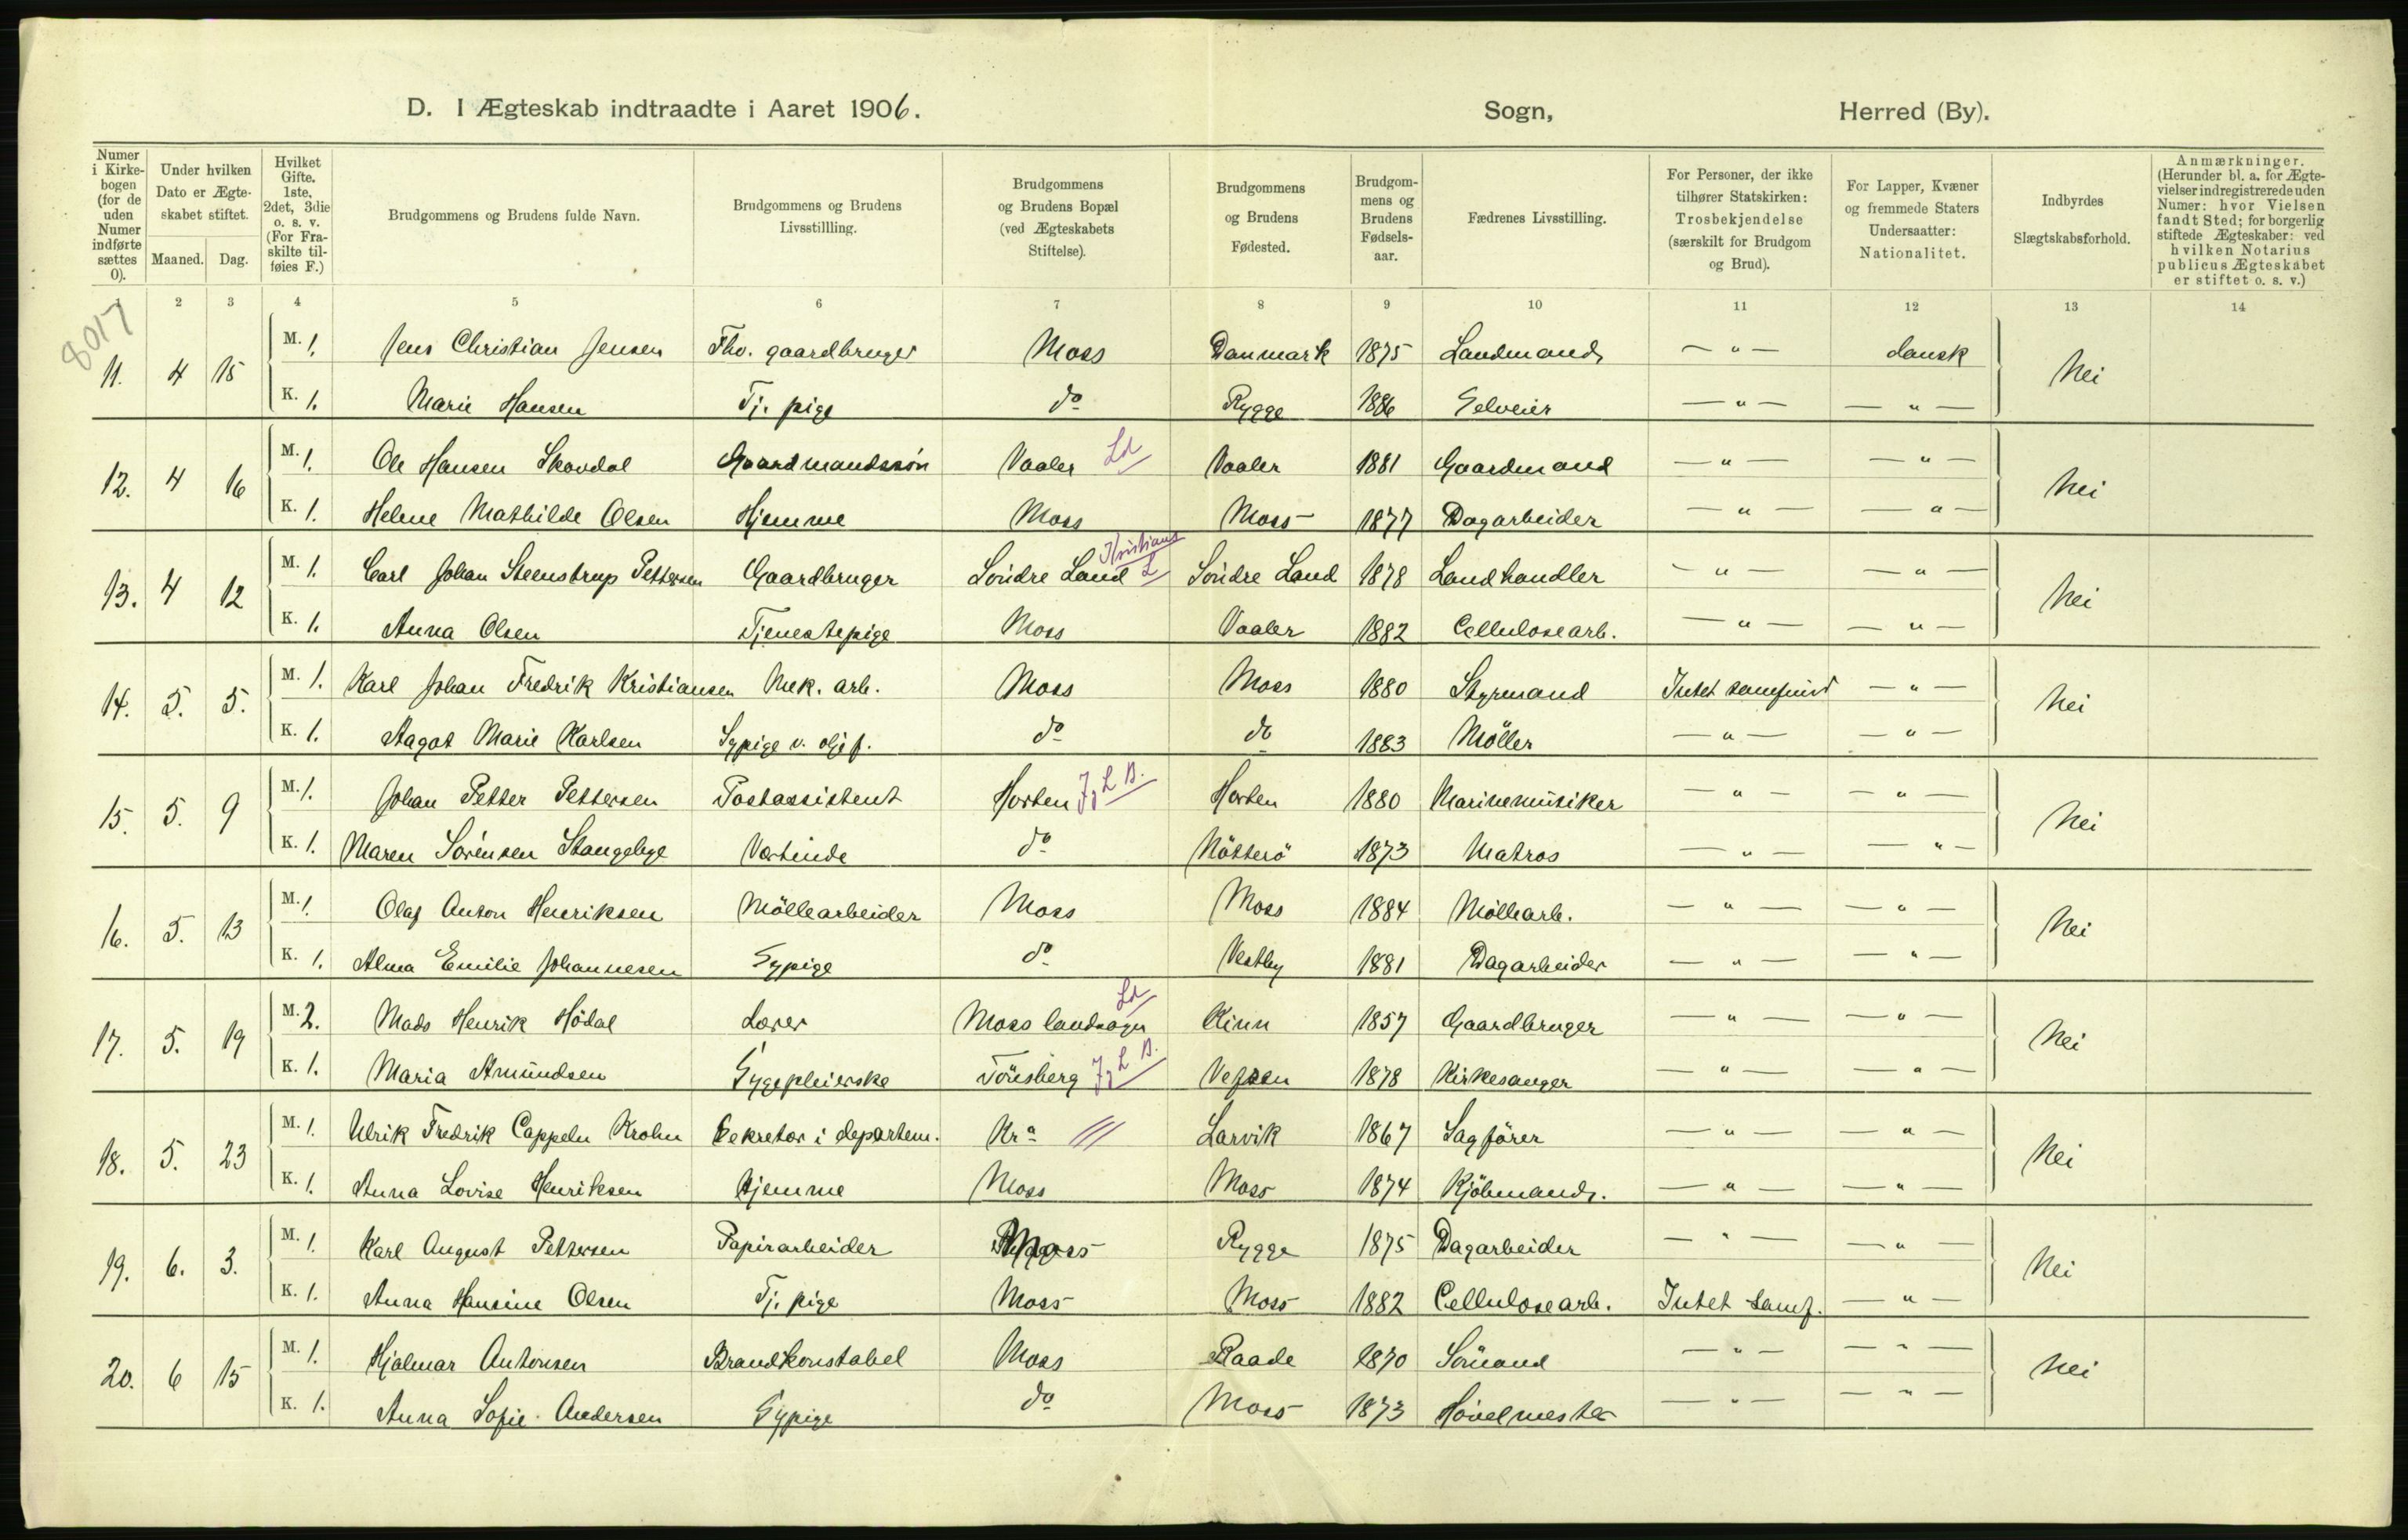 D. I Ægteskab indtraadte i Aaret 1906. Sogn, Herred (By).
Numer i Kirkebogen (for de uden Numer indførte sættes 0).
Under hvilken Dato er Ægteskabet stiftet.
Maaned. Dag.
Hvilket Gifte. 1ste, 2det, 3die o. s. v. (For Fraskilte tilføies F.)
Brudgommens og Brudens fulde Navn.
Brudgommens og Brudens Livsstillling.
Brudgommens og Brudens Bopæl (ved Ægteskabets Stiftelse).
Brudgommens og Brudens Fødested.
Brudgommens og Brudens Fødselsaar.
Fædrenes Livsstilling.
For Personer, der ikke tilhører Statskirken: Trosbekjendelse (særskilt for Brudgom og Brud).
For Lapper, Kvæner og fremmede Staters Undersaatter: Nationalitet.
Indbyrdes Slægtskabsforhold.
Anmærkninger. (Herunder bl. a. for Ægtevielser indregistrerede uden Numer: hvor Vielsen fandt Sted; for borgerlig stiftede Ægteskaber: ved hvilken Notarius publicus Ægteskabet er stiftet o. s. v.)
1 2 3 4 5 6 7 8 9 10 11 12 13 14
8017
11. 4 15 M. 1. Jens Christian Jensen Fhv. gaardbruger Moss Danmark 1875 Landmand — " — dansk Nei
K. 1. Marie Hansen Tj. pige do Rygge 1886 Selveier — " — — " —
12. 4 16 M. 1. Ole Hansen Skovdal Gaardmandssøn Vaaler Ld Vaaler 1881 Gaardmand — " — — " — Nei
K. 1. Helene Mathilde Olsen Hjemme Moss Moss 1877 Dagarbeider — " — — " —
13. 4 12 M. 1. Carl Johan Steenstrup Pettersen Gaardbruger Söndre Land Kristians L Söndre Land 1878 Landhandler — " — — " — Nei
K. 1. Anna Olsen Tjenestepige Moss Vaaler 1882 Cellulosearb. — " — — " —
14. 5. 5. M. 1. Karl Johan Fredrik Kristiansen Mek. arb. Moss Moss 1880 Styrmand Intet samfund — " — Nei
K. 1. Aagot Marie Karlsen Sypige v. oljef. do do 1883 Möller — " — — " —
15. 5. 9 M. 1. Johan Petter Pettersen Postassistent Horten J L B. Horten 1880 Marinemusiker — " — — " — Nei
K. 1. Maren Sörensen Stangebye Værtinde do Nötterö 1873 Matros — " — — " —
16. 5. 13 M. 1. Olaf Anton Henriksen Möllearbeider Moss Moss 1884 Möllearb. — " — — " — Nei
K. 1. Alma Emilie Johannesen Sypige do Vestby 1881 Dagarbeider — " — — " —
17. 5. 19 M. 2. Mads Henrik Hödal Lærer Moss landsogn Ld Kinn 1857 Gaardbruger — " — — " — Nei
K. 1. Maria Amundsen Sygepleierske Tönsberg J L B. Vefsen 1878 Kirkesanger — " — — " —
18. 5. 23 M. 1. Ulrik Fredrik Cappeln Krohn Sekretær i departem. Kra /// Larvik 1867 Sagförer — " — — " — Nei
K. 1. Anna Lovise Henriksen Hjemme Moss Moss 1874 Kjöbmand. — " — — " —
19. 6. 3. M. 1. Karl August Pettersen Papirarbeider Moss Rygge 1875 Dagarbeider — " — — " — Nei
K. 1. Anna Hansine Olsen Tj. pige Moss Moss 1882 Cellulosearb. Intet samf. — " —
20. 6 15 M. 1. Hjalmar Antonsen Brandkonstabel Moss Raade 1870 Sömand — " — — " — Nei
K. 1. Anna Sofie Andersen Sypige do Moss 1873 Hövelmester — " — — " —